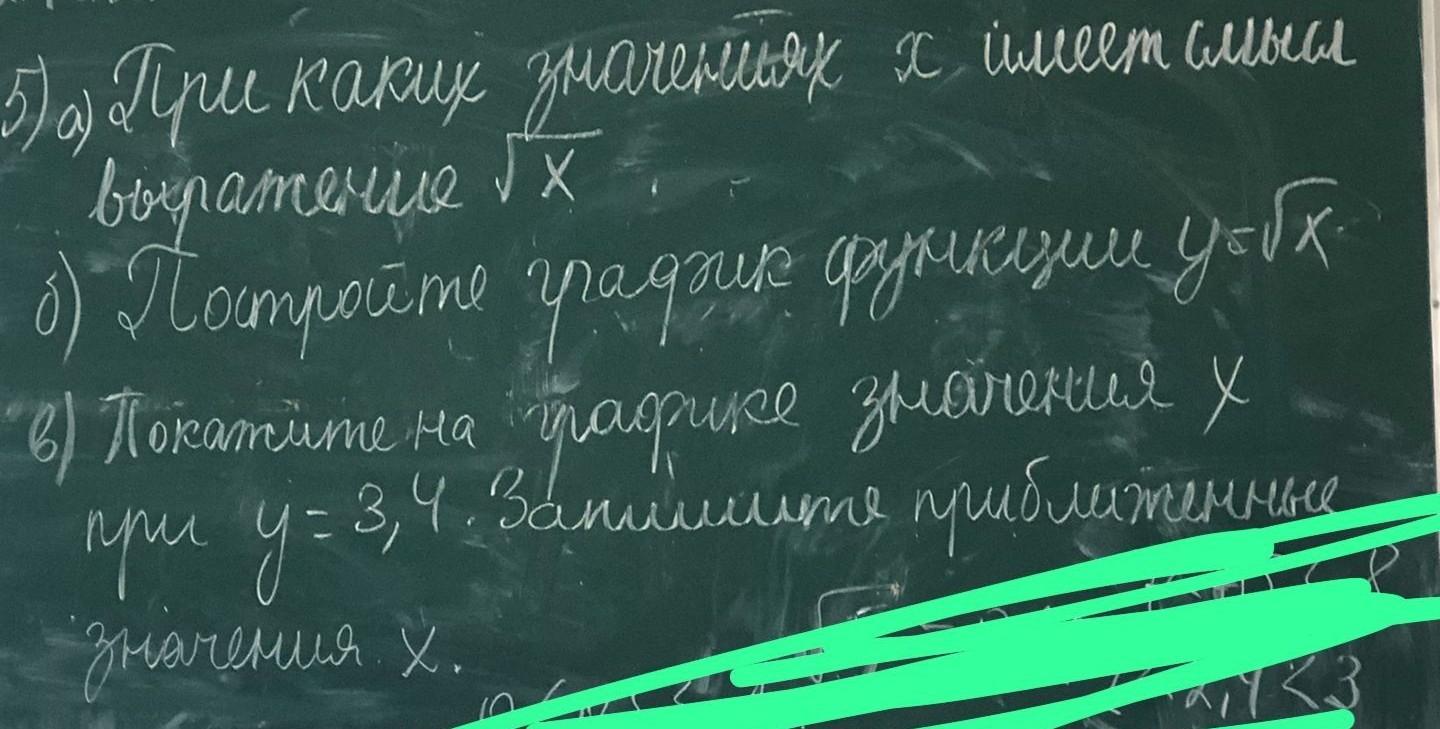 5) а) При каких значениях x имеет смысл
выражение √x
б) Постройте график функции y=√x.
в) Покажите на графике значения x
при y = 3,4. Запишите приближенные
значения x.
2,4 < 3